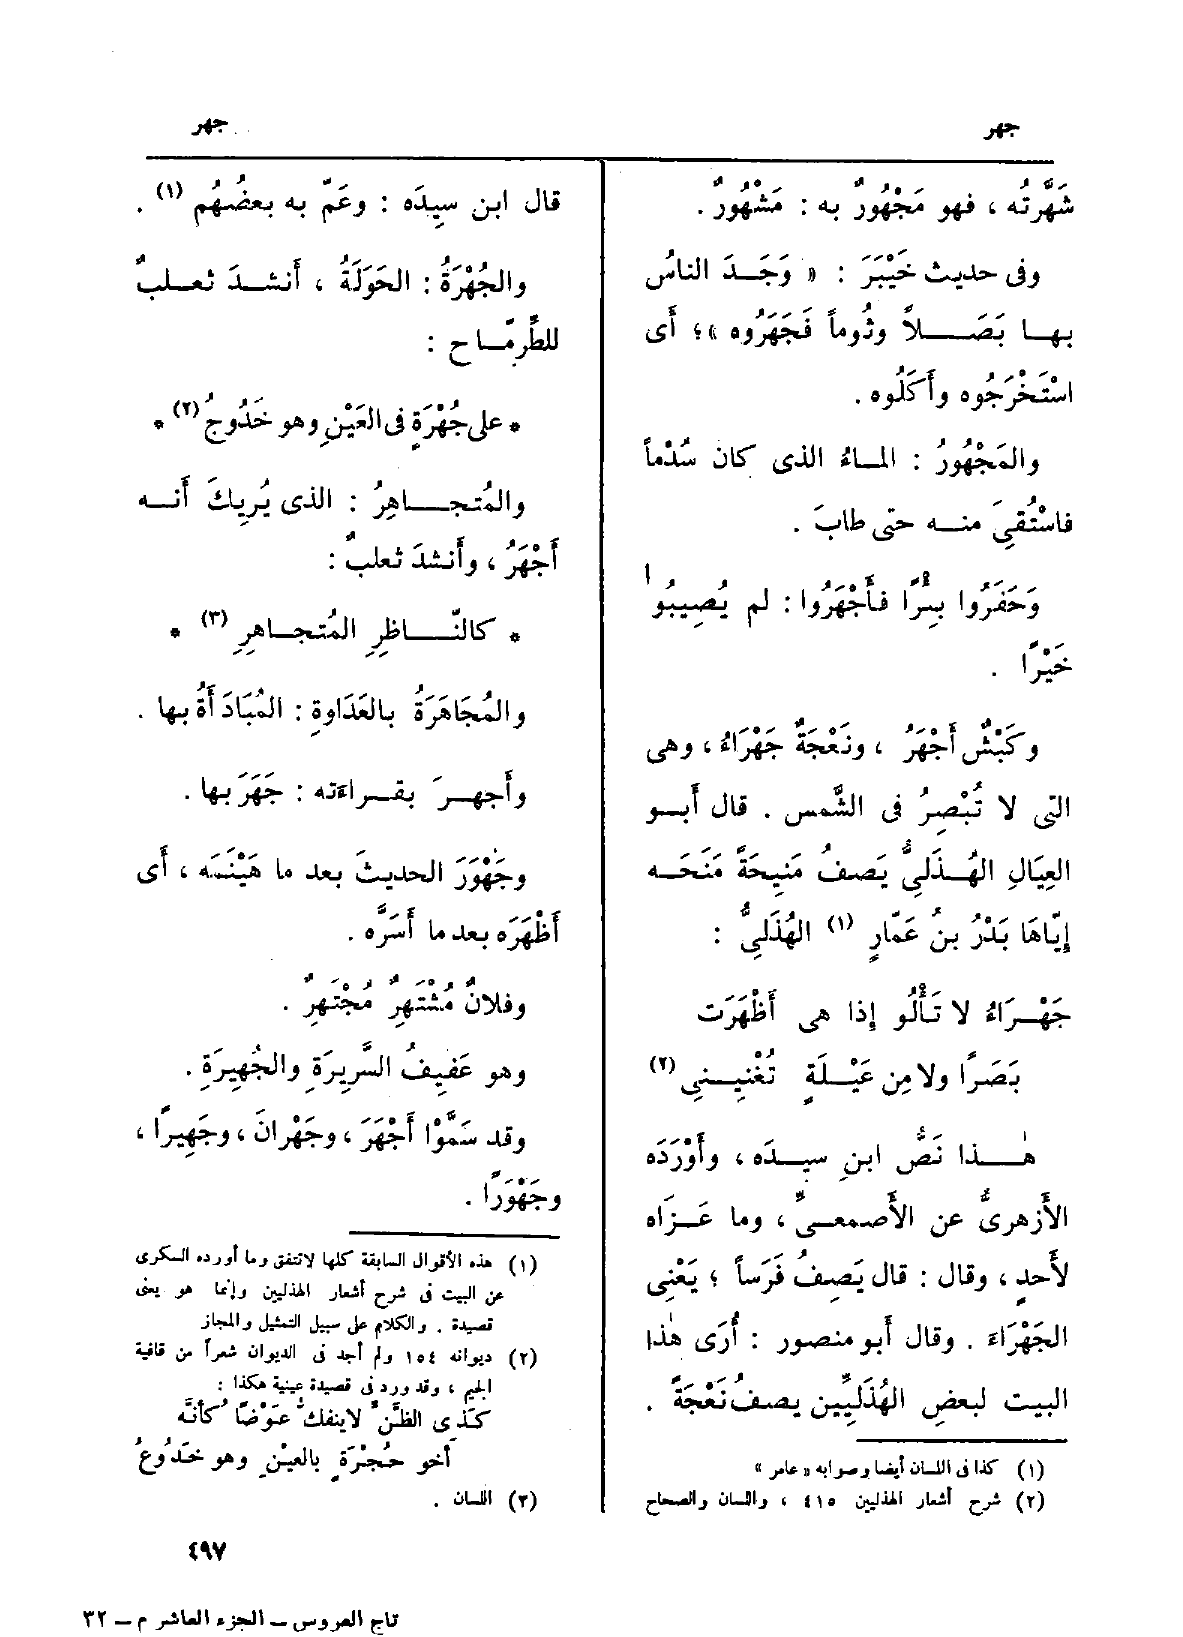 جهر
جهر
شَهَّرتُه ، فهو مَجْهُورٌ به : مَشْهُورٌ .
وفى حديث خَيْبَرَ : « وَجَدَ الناسُ
بها بَصَلاً وثُوماً فَجَهَرُوه » ؛ أى
اسْتَخْرَجُوه وأَكَلُوه .
والمَجْهُورُ : الماءُ الذى كان سُدْماً
فاسْتُقِىَ منه حتى طابَ .
وَحَفَرُوا بِئْرًا فأَجْهَرُوا : لم يُصِيبُوا
خَيْرًا .
وكَبْشٌ أَجْهَرُ ، ونَعْجَةٌ جَهْرَاءُ ، وهى
التى لا تُبْصِرُ فى الشَّمس . قال أَبو
العِيَالِ الهُذَلىُّ يَصفُ مَنِيحَةً مَنَحَه
إِيّاهَا بَدْرُ بنُ عَمّارٍ (١) الهُذَلىُّ :
جَهْرَاءُ لا تَأْلُو إذا هى أَظْهَرَت
بَصَرًا ولا مِن عَيْلَةٍ تُغْنِينى (٢)
هٰذا نَصُّ ابنِ سيدَه ، وأَوْرَدَه
الأَزهرىُّ عن الأَصمعىِّ ، وما عَزَاه
لأَحدٍ ، وقال : قال يَصِفُ فَرَساً ؛ يَعْنِى
الجَهْرَاءَ . وقال أَبو منصور : أُرَى هٰذا
البيت لبعضِ الهُذَلِيِّين يصفُ نَعْجَةً .
(١) كذا فى اللسان أيضا وصوابه « عامر »
(٢) شرح أشعار الهذليين ٤١٥ ، واللسان والصحاح
قال ابن سِيدَه : وعَمّ به بعضُهُم (١) .
والجُهْرَةُ : الحَوَلَةُ ، أَنشدَ ثعلبٌ
للطِّرِمّاح :
* على جُهْرَةٍ فى العَيْنِ وهو خَدُوجُ (٢) *
والمُتجاهِرُ : الذى يُرِيكَ أَنه
أَجْهَرُ ، وأَنشدَ ثعلبٌ :
* كالنّاظِرِ المُتجاهِرِ (٣) *
والمُجَاهَرَةُ بالعَدَاوةِ : المُبَادَأَةُ بها .
وأَجهرَ بقراءَته : جَهَرَ بها .
وجَهْوَرَ الحديثَ بعد ما هَيْنَمَه ، أَى
أَظْهَرَه بعد ما أَسَرَّه .
وفلانٌ مُشْتَهِرٌ مُجْتَهِرٌ .
وهو عَفِيفُ السَّرِيرَةِ والجَهِيرَةِ .
وقد سَمَّوْا أَجْهَرَ ، وجَهْرانَ ، وجَهِيرًا ،
وجَهْوَرًا .
(١) هذه الأقوال السابقة كلها لاتتفق وما أورده السكرى
عن البيت فى شرح أشعار الهذليين وإنما هو يعنى
قصيدة . والكلام على سبيل التمثيل والمجاز
(٢) ديوانه ١٥٤ ولم أجد فى الديوان شعراً من قافية
الجيم ، وقد ورد فى قصيدة عينية هكذا :
كذى الظنِّ لاينفكُّ عَوْضًا كأنّه
أخو حُجْرَةٍ بالعيْنِ وهو خَدُوعُ
(٣) اللسان .
٤٩٧
تاج العروس – الجزء العاشر م – ٣٢